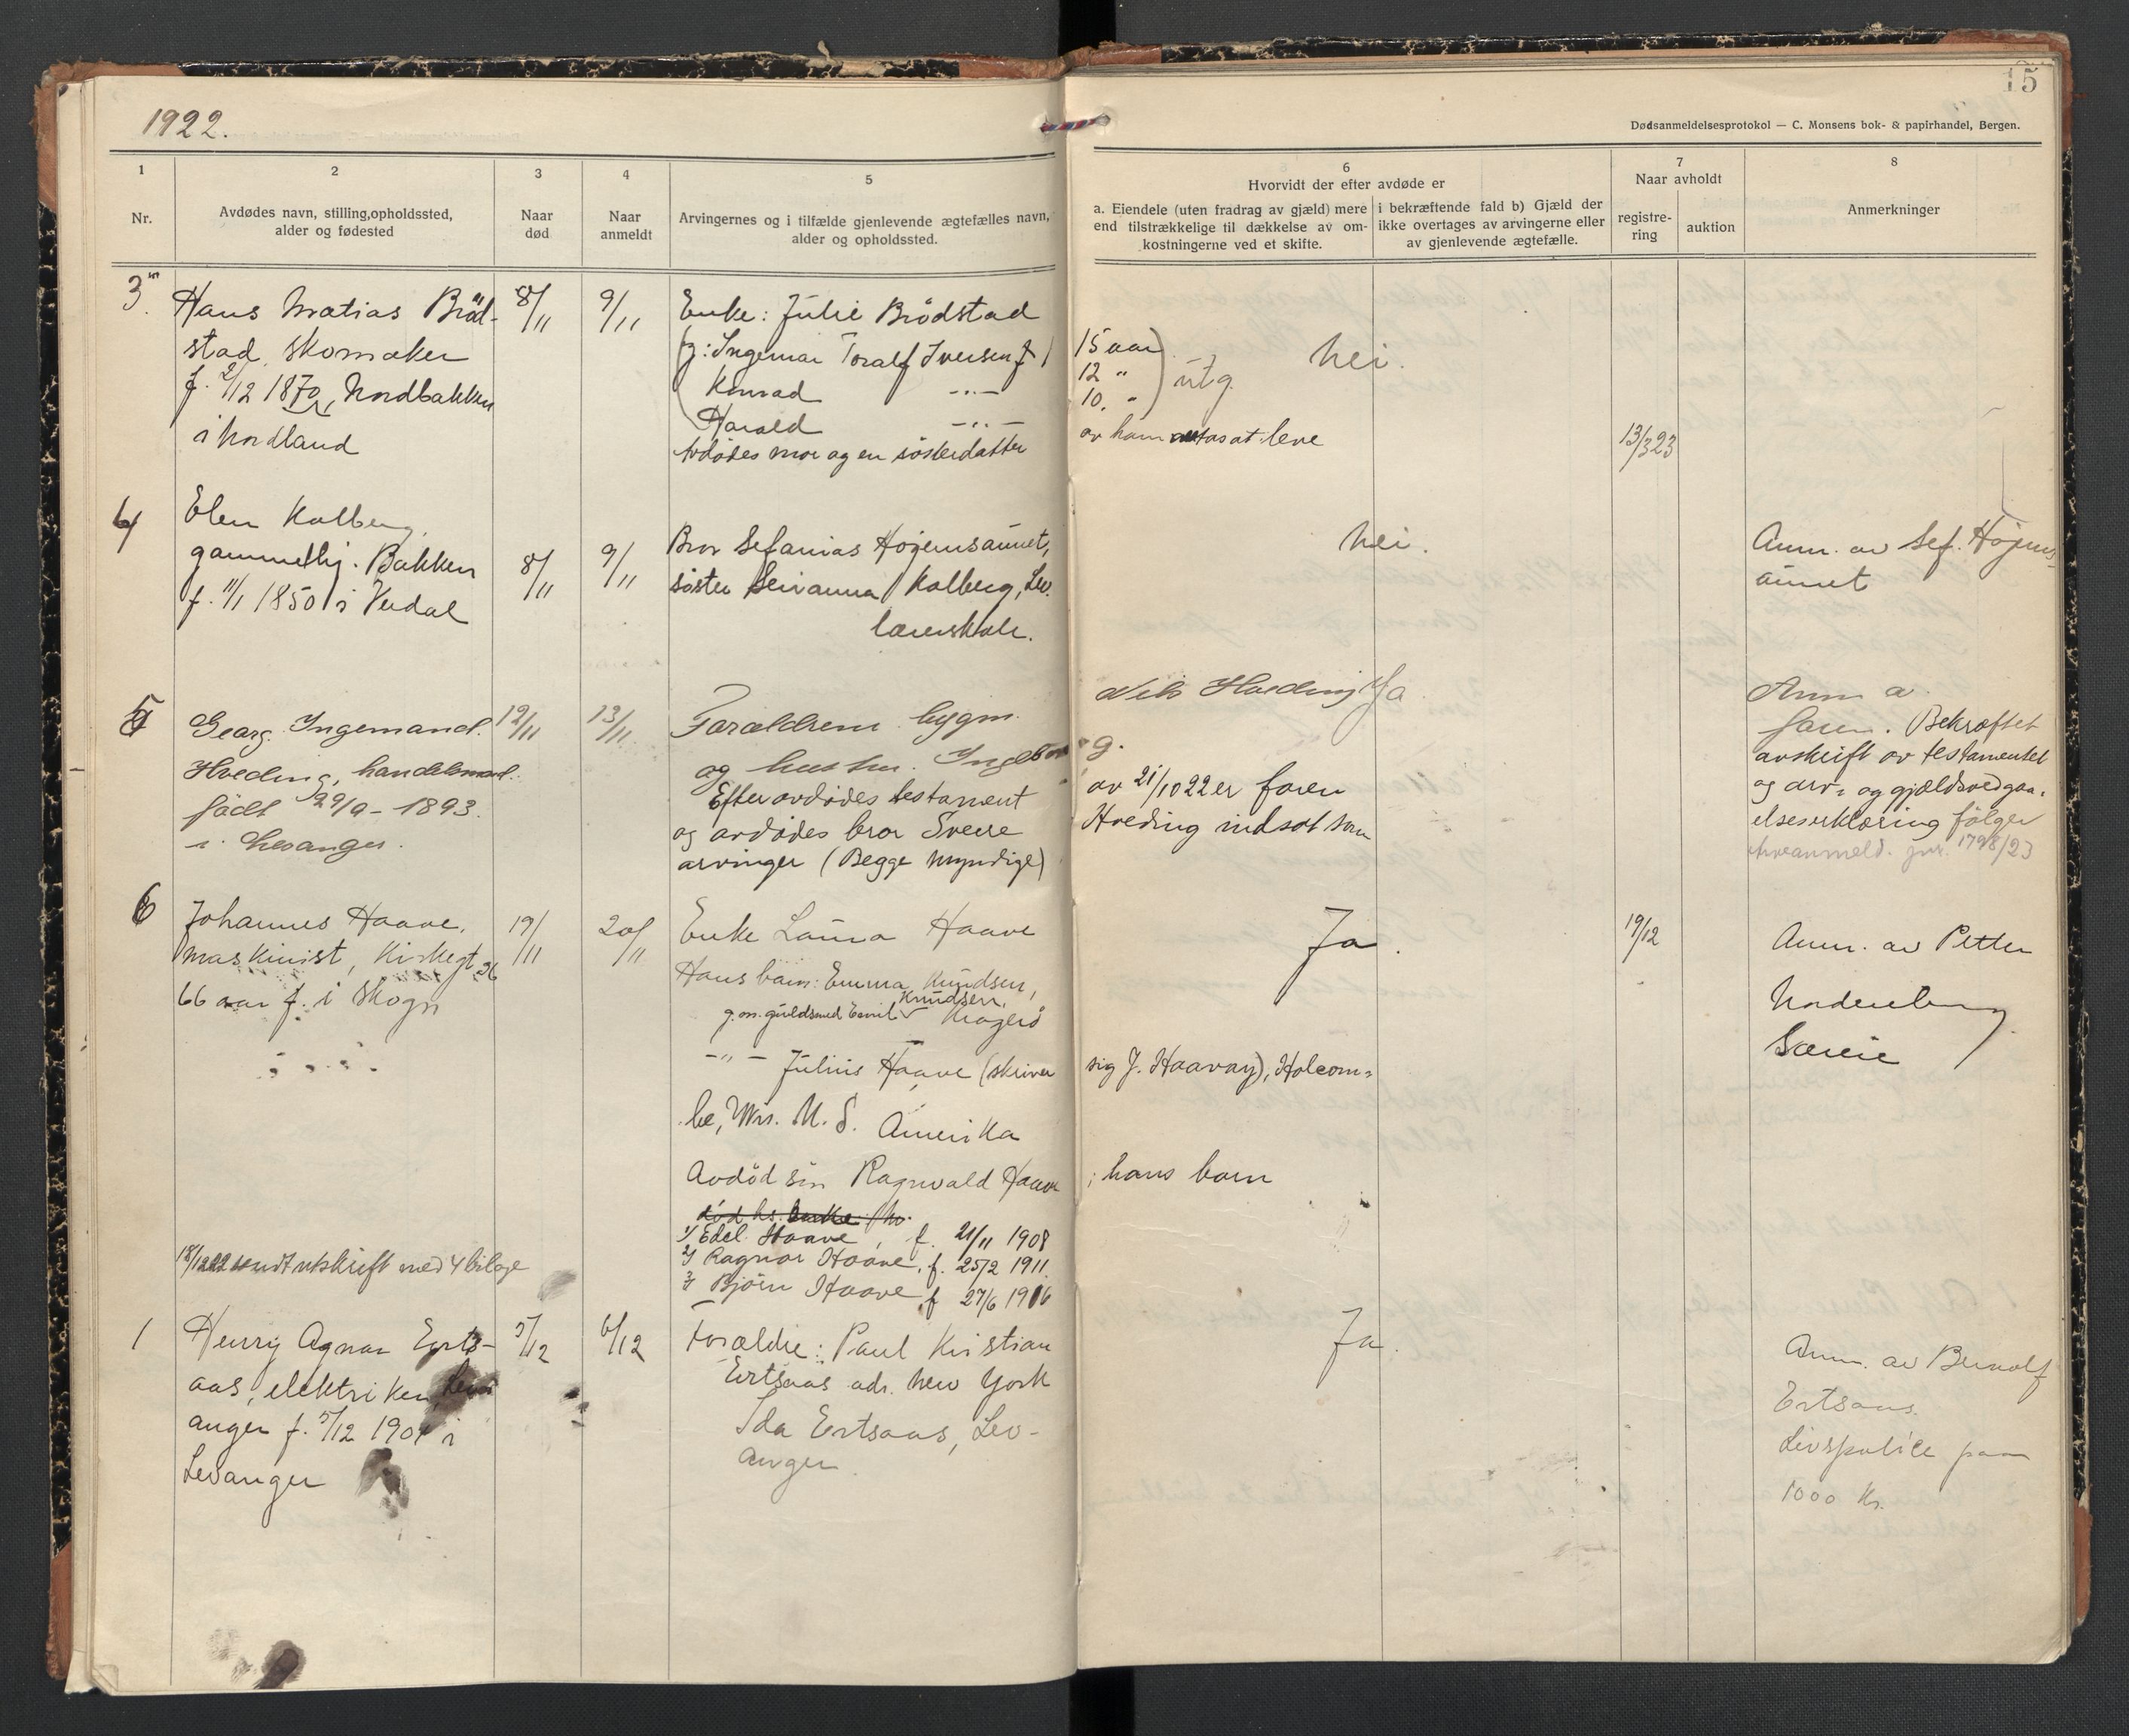 1922.
15
Dødsanmeldelsesprotokol — C. Monsens bok- & papirhandel, Bergen.
1
Nr.
2
Avdødes navn, stilling, opholdssted,
alder og fødested
3
Naar
død
4
Naar
anmeldt
5
Arvingernes og i tilfælde gjenlevende ægtefælles navn,
alder og opholdssted.
6
Hvorvidt der efter avdøde er
a. Eiendele (uten fradrag av gjæld) mere
end tilstrækkelige til dækkelse av om-
kostningerne ved et skifte.
i bekræftende fald b) Gjæld der
ikke overtages av arvingerne eller
av gjenlevende ægtefælle.
7
Naar avholdt
registre-
ring
auktion
8
Anmerkninger
3
Hans Matias Bröd-
stad, skomaker
f. 2/12 1870, Nordbakken
i Nordland
8/11
9/11
Enke: Julie Brödstad
Ingemar Toralf Iversen f. 15 aar
Konrad -"- 12 "
Harald -"- 10. "
utg.
Avdödes mor og en sösterdatter av ham antas at leve
Nei.
13/3 23
4
Elen Kolberg,
gammellj. Bakken
f. 11/1 1850 i Verdal
8/11
9/11
Bror Sefanias Höjemsaunet,
söster Kolberg, Lev.
lærerskole.
Nei.
Anm. av Sef. Höjems-
aunet
5
Georg Ingemand.
Hveding, handelsmand.
födt 29/9 - 1893.
i Levanger.
12/11
13/11
Forældrene bygm. Nils Hveding
og hustru. Ingeborg.
Efter avdödes testament av 21/10 22 er faren
og avdödes bror Sverre Hveding indsat som
arvinger (Begge myndige)
Ja
Anm a.
faren. Bekræftet
avskrift av testamentet
og arv- og gjældsvedgaa-
elseserklæring fölger
arveanmeld. jnr. 1798/23
6
Johannes Haave,
maskinist, Kirkegt 26
66 aar f. i Skogn
19/11
20/11
Enke Laura Haave
Hans barn: Emma Knudsen,
g.m. guldsmed Emil Knudsen, Kragerö
-"- Julius Haave (skriver sig J. Haavay), Holcom-
be, Wis. U. S. Amerika
Avdöd sön Ragnvald Haave; hans barn
död hs. enke
1/ Edel Haave, f. 21/11 1908
2/ Ragnar Haave, f. 25/2 1911
3/ Björn Haave, f 27/6 1916
Ja.
19/12
Anm. av Petter
Nordenborg
Sævie
18/12 22 sendt utskrift med 4 bilage
1
Henry Agnar Erts-
aas, elektriker, Lev-
anger f. 5/12 1901 i
Levanger
5/12
6/12
Forældre: Paul Kristian
Ertsaas adr. New York
Ida Ertsaas, Lev-
anger.
Ja.
Anm. av Bernolf
Ertsaas.
Livspolice paa
1000 Kr.